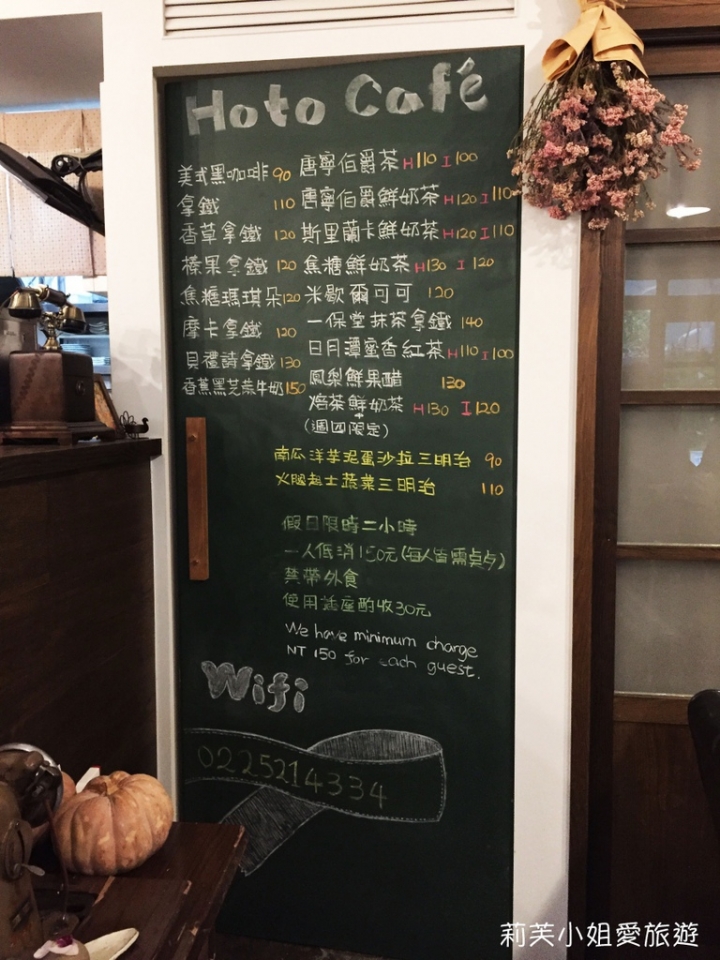 Hoto Café
美式黑咖啡 90
拿鐵 110
香草拿鐵 120
榛果拿鐵 120
焦糖瑪琪朵 120
摩卡拿鐵 120
貝禮詩拿鐵 130
香蕉黑芝麻牛奶 150
唐寧伯爵茶 H110 I100
唐寧伯爵鮮奶茶 H120 I110
斯里蘭卡鮮奶茶 H120 I110
焦糖鮮奶茶 H130 I120
米歇爾可可 120
一保堂抹茶拿鐵 140
日月潭蜜香紅茶 H110 I100
鳳梨鮮果醋 130
焙茶鮮奶茶 H130 I120
(週四限定)
南瓜洋芋泥蛋沙拉三明治 90
火腿起士蔬菜三明治 110
假日限時二小時
一人低消150元(每人皆需點)
禁帶外食
使用插座酌收30元
We have minimum charge
NT 150 for each guest.
Wifi
0225214334
莉芙小姐愛旅遊